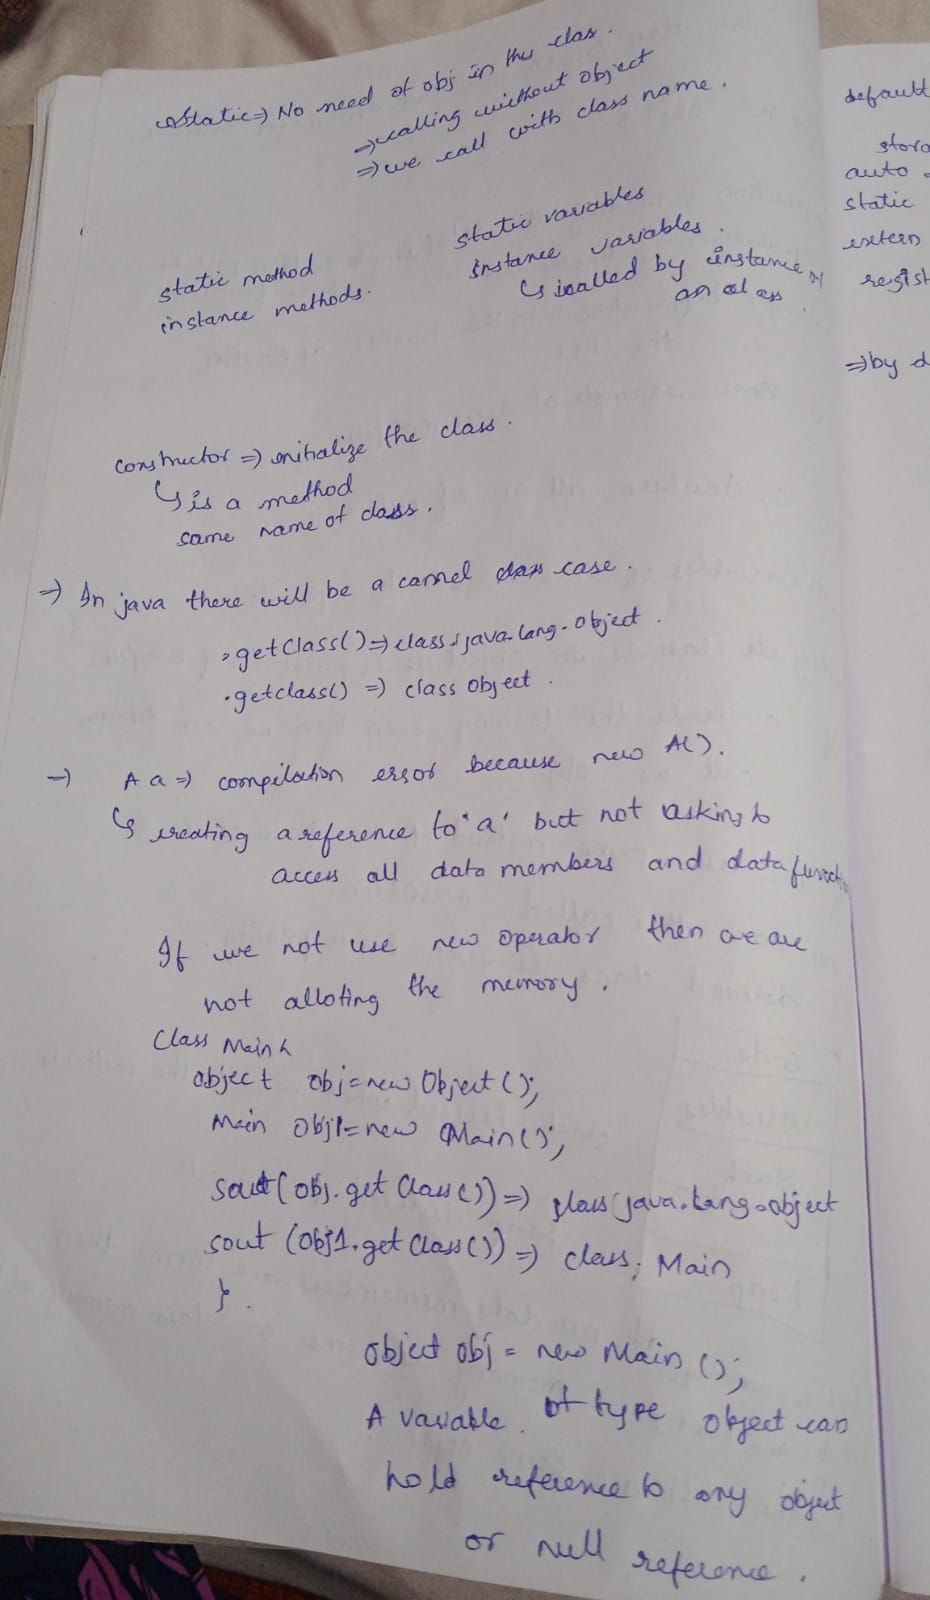 static => No need of obj in the clas.
=> calling without object
=> we call with class name.
static method
instance methods.
static variables
instance variables.
↳ is called by instance of
an class
constructor => initialize the class.
↳ is a method
same name of class.
=> In java there will be a camel case.
.getClass() => class java.lang.Object.
.getclass() => class object.
=> A a => compilation error because new A().
↳ creating a reference to 'a' but not asking to
access all data members and data
If we not use new operator then we are
not alloting the memory.
Class Main {
object obj = new Object();
Main obj1 = new Main();
sout(obj.getClass()) => class java.lang.object
sout (obj1.getClass()) => class; Main
}.
object obj = new Main ();
A variable of type object can
hold reference to any object
or null reference.
default
auto
static
extern
=> by d